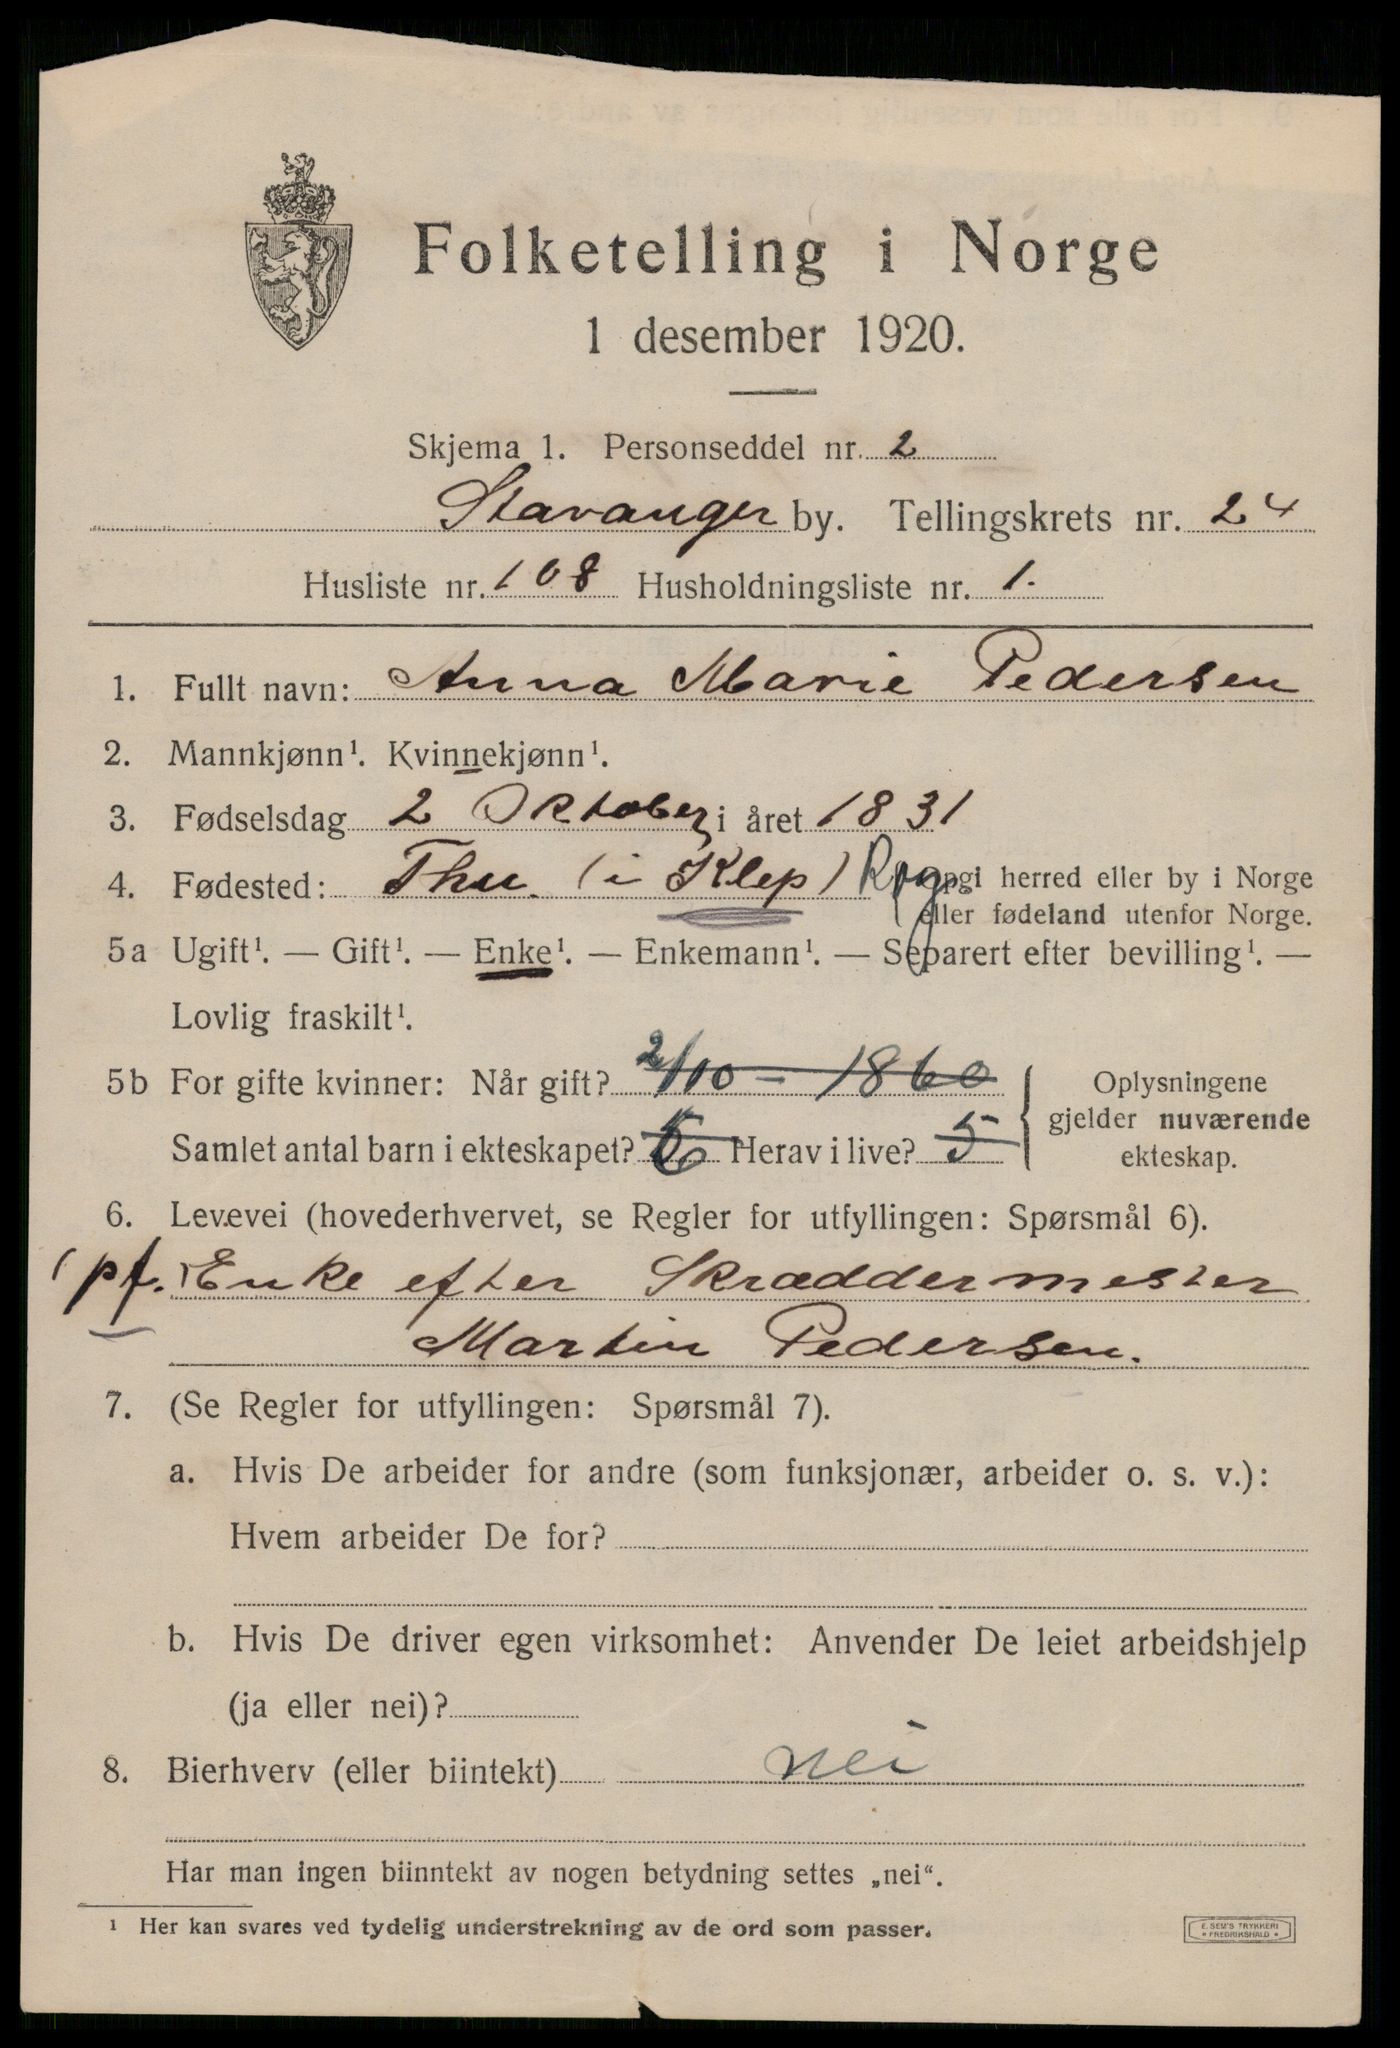 Folketelling i Norge
1 desember 1920.
Skjema 1. Personseddel nr. 2
Stavanger by. Tellingskrets nr. 24
Husliste nr. 108 Husholdningsliste nr. 1.
1. Fullt navn: Anna Marie Pedersen
2. Mannkjønn¹. Kvinnekjønn¹.
3. Fødselsdag 2 Oktober i året 1831
4. Fødested: Thu. (i Klep) Rog. opgi herred eller by i Norge
eller fødeland utenfor Norge.
5a Ugift¹. — Gift¹. — Enke¹. — Enkemann¹. — Separert efter bevilling¹. —
Lovlig fraskilt¹.
5b For gifte kvinner: Når gift? 2/10 - 1860
Samlet antal barn i ekteskapet? Herav i live? 5
Oplysningene
gjelder nuværende
ekteskap.
6. Levevei (hovederhvervet, se Regler for utfyllingen: Spørsmål 6).
(pf.) Enke efter Skræddermester
Martin Pedersen.
7. (Se Regler for utfyllingen: Spørsmål 7).
a. Hvis De arbeider for andre (som funksjonær, arbeider o. s. v.):
Hvem arbeider De for?
b. Hvis De driver egen virksomhet: Anvender De leiet arbeidshjelp
(ja eller nei)?
8. Bierhverv (eller biintekt) nei
Har man ingen biinntekt av nogen betydning settes „nei“.
¹ Her kan svares ved tydelig understrekning av de ord som passer.
E. SEM'S TRYKKERI
* FREDRIKSHALD *